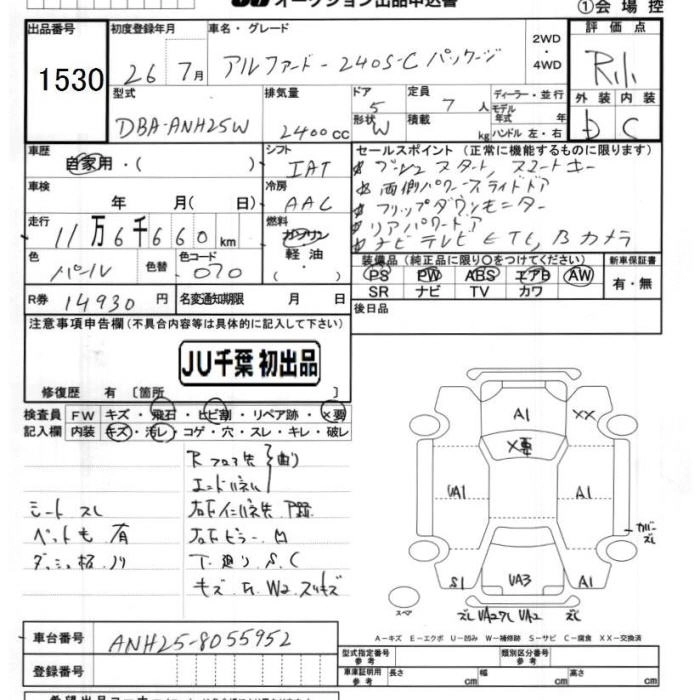 オークション出品申込書
①会場控
出品番号 1530
初度登録年月 26 7月
車名・グレード アルファード-240S-Cパッケージ
2WD・4WD
評価点
外装 内装
D C
型式 DBA-ANH25W
排気量 2400cc
ドア 5
形状 W
定員 7 人
積載 kg
ディーラー・並行
モデル年式 年
ハンドル 左・右
車歴 自家用・( )
シフト IAT
冷房 AAC
車検 年 月( 日)
走行 11万6千660km
燃料 ガソリン 軽油 ・( )
色 パール 色替 色コード 070
R券 14930円 名変通知期限 月 日
セールスポイント(正常に機能するものに限ります)
プッシュスタート, スマートキー
両側パワースライドドア
フリップダウンモニター
リアパワードア
ナビテレビETC, Bカメラ
装備品(純正品に限り○をつけてください)
PS PW ABS エアB AW
SR ナビ TV カワ
新車保証書 有・無
後日品
注意事項申告欄(不具合内容等は具体的に記入して下さい)
JU千葉 初出品
修復歴 有 〔箇所 〕
検査員記入欄
FW キズ・飛石・ヒビ割・リペア跡・×要
内装 キズ・汚レ・コゲ・穴・スレ・キレ・破レ
シートスレ
ペット毛 有
T.廻り.S.C
A1
××
×要
UA1
A1
カバーズレ
S1
UA3
A1
スペア
ズレ UA2ワレ UA2 ズレ
A-キズ E-エクボ U-凹み W-補修跡 S-サビ C-腐食 XX-交換済
車台番号 ANH25-8055952
登録番号
型式指定番号 参考
類別区分番号 参考
車庫証明用 参考 長さ cm 幅 cm 高さ cm